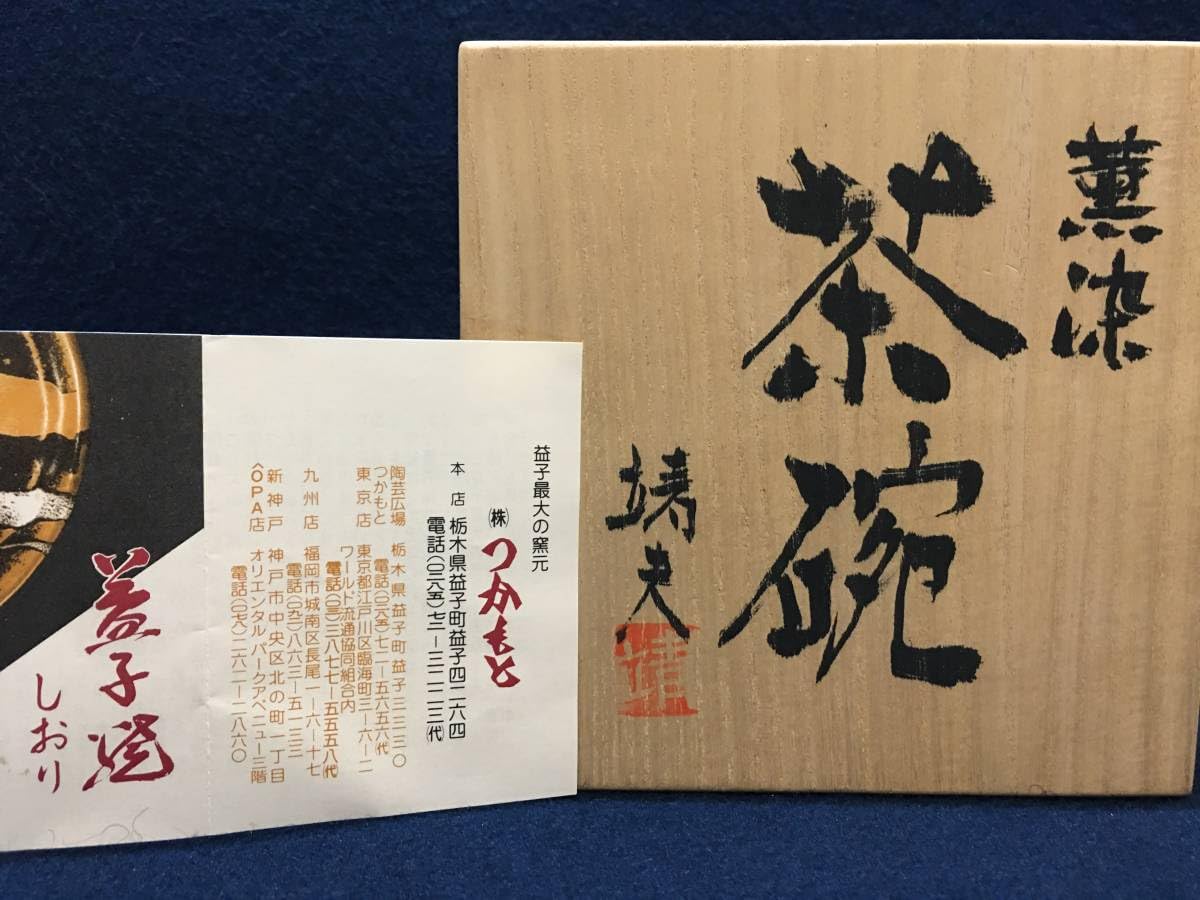 薫染
茶碗
靖夫
益子最大の窯元
㈱つかもと
本店 栃木県益子町益子四二六四
電話(〇二八五)七二-三二二三(代)
陶芸広場
つかもと
栃木県益子町益子三三二〇
電話(〇二八五)七二-五六五六(代)
東京店
東京都江戸川区臨海町三-六-二
ワールド流通協同組合内
電話(〇三)三八七七-五五五八(代)
九州店
福岡市城南区長尾一-六-十七
電話(〇九二)八六三-五一三三
新神戸
OPA店
神戸市中央区北の町一丁目
オリエンタルパークアベニュー三階
電話(〇七八)二六二-二八六〇
益子焼
しおり